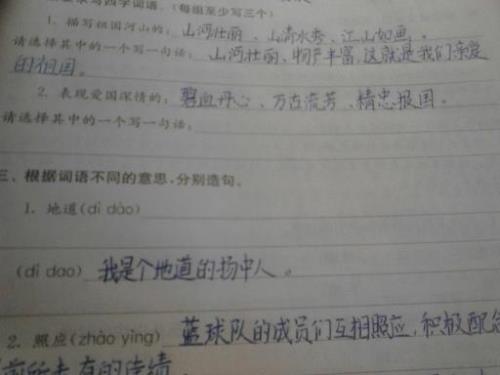 写四字词语。(每组至少写三个)
1. 描写祖国河山的：山河壮丽、山清水秀、江山如画。
请选择其中的一个写一句话：山河壮丽、物产丰富，这就是我们亲爱
的祖国。
2. 表现爱国深情的：碧血丹心、万古流芳、精忠报国。
请选择其中的一个写一句话：
三、根据词语不同的意思，分别造句。
1. 地道(dì dào)
(dì dao) 我是个地道的扬中人。
2. 照应(zhào yìng) 蓝球队的成员们互相照应，积极配合
前所未有的成绩